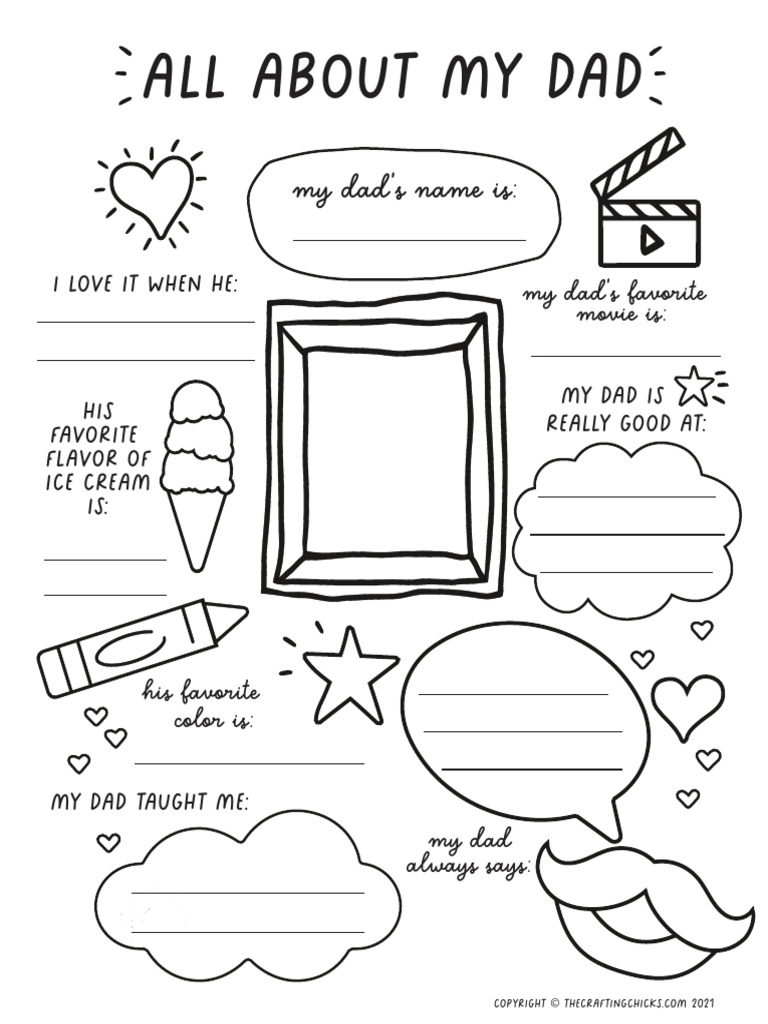 ALL ABOUT MY DAD
my dad's name is:
I LOVE IT WHEN HE:
my dad's favorite
movie is:
HIS
FAVORITE
FLAVOR OF
ICE CREAM
IS:
MY DAD IS
REALLY GOOD AT:
his favorite
color is:
MY DAD TAUGHT ME:
my dad
always says:
COPYRIGHT © THECRAFTINGCHICKS.COM 2021